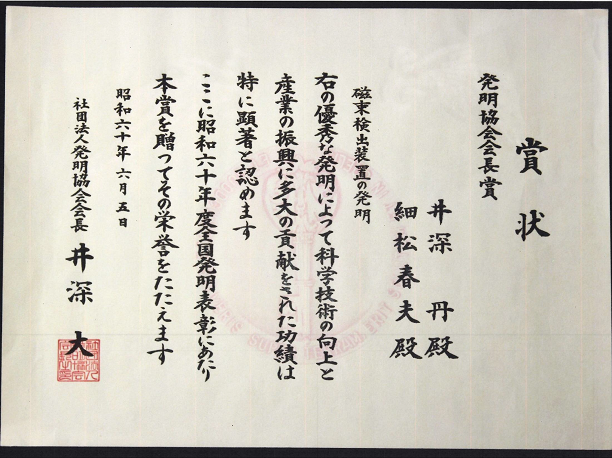 賞状
発明協会会長賞
井深 丹殿
細松春夫殿
磁束検出装置の発明
右の優秀な発明によって科学技術の向上と
産業の振興に多大の貢献をされた功績は
特に顕著と認めます
ここに昭和六十年度全国発明表彰にあたり
本賞を贈ってその栄誉をたたえます
昭和六十年六月五日
社団法人発明協会会長 井深 大